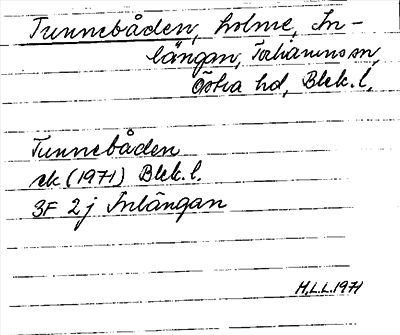 Tunnebåden, holme, In-
längan, Torhamns sn,
Östra hd, Blek. l.
Tunnebåden
ek (1971) Blek. l.
3F 2j Inlängan
M.L.L. 1971